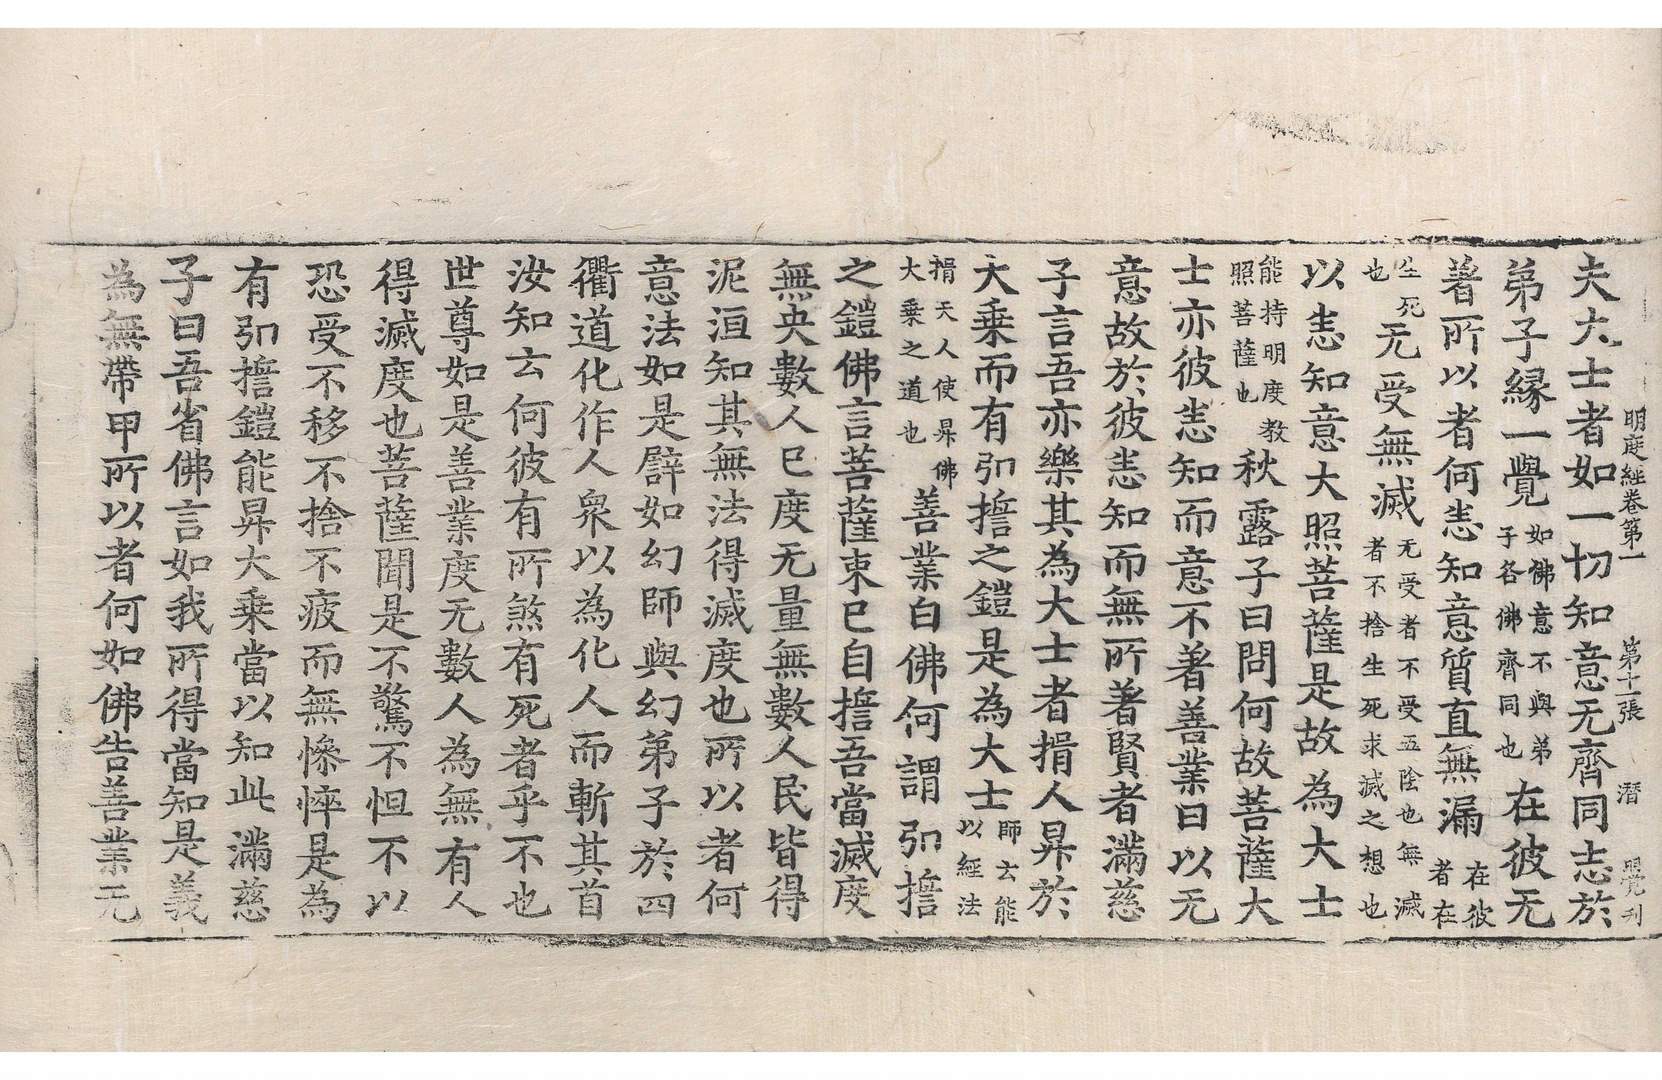 明度経卷第一　第十一張　潛　覺刊
夫大士者如一切知意无齊同志於
弟子緣一覺如佛意不與弟子各佛齊同也在彼无
著所以者何恚知意質直無漏在彼者在
生死也无受無滅无受者不受五陰也無滅者不捨生死求滅之想也
以恚知意大照菩薩是故為大士
能持明度教照菩薩也秋露子曰問何故菩薩大
士亦彼恚知而意不著善業曰以无
意故於彼恚知而無所著賢者滿慈
子言吾亦樂其為大士者捐人昇於
大乘而有弘誓之鎧是為大士師云能以經法
捐天人使昇佛大乘之道也善業白佛何謂弘誓
之鎧佛言菩薩束已自誓吾當滅度
無央數人已度无量無數人民皆得
泥洹知其無法得滅度也所以者何
意法如是譬如幻師與幻弟子於四
衢道化作人衆以為化人而斬其首
汝知云何彼有所煞有死者乎不也
世尊如是善業度无數人為無有人
得滅度也菩薩聞是不驚不怛不以
恐受不移不捨不疲而無慘悴是為
有弘誓鎧能昇大乘當以知此滿慈
子曰吾省佛言如我所得當知是義
為無帶甲所以者何如佛告善業无